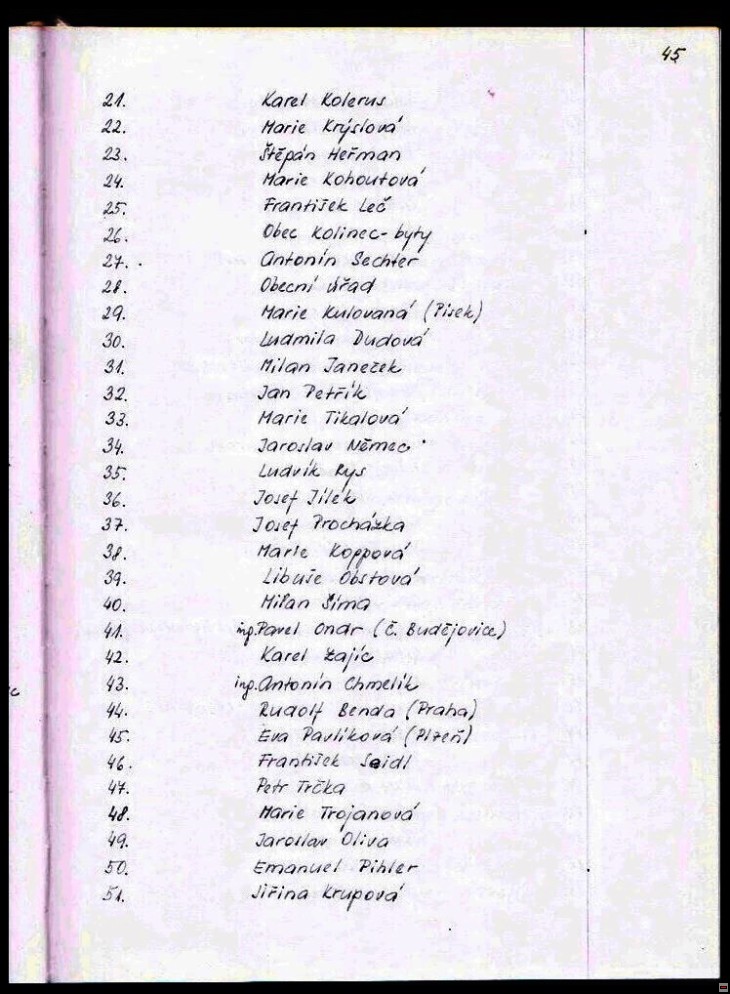 45
21. Karel Kolerus
22. Marie Krýslová
23. Štěpán Heřman
24. Marie Kohoutová
25. František Leč
26. Obec Kolinec - byty
27. Antonín Sechter
28. Obecní úřad
29. Marie Kulovaná (Písek)
30. Ludmila Dudová
31. Milan Janeček
32. Jan Petřík
33. Marie Tikalová
34. Jaroslav Němec
35. Ludvík Rys
36. Josef Jílek
37. Josef Procházka
38. Marie Koppová
39. Libuše Obstová
40. Milan Šíma
41. ing. Pavel Ondr (Č. Budějovice)
42. Karel Zajíc
43. ing. Antonín Chmelík
44. Rudolf Benda (Praha)
45. Eva Pavlíková (Plzeň)
46. František Seidl
47. Petr Trčka
48. Marie Trojanová
49. Jaroslav Oliva
50. Emanuel Pihler
51. Jiřina Krupová